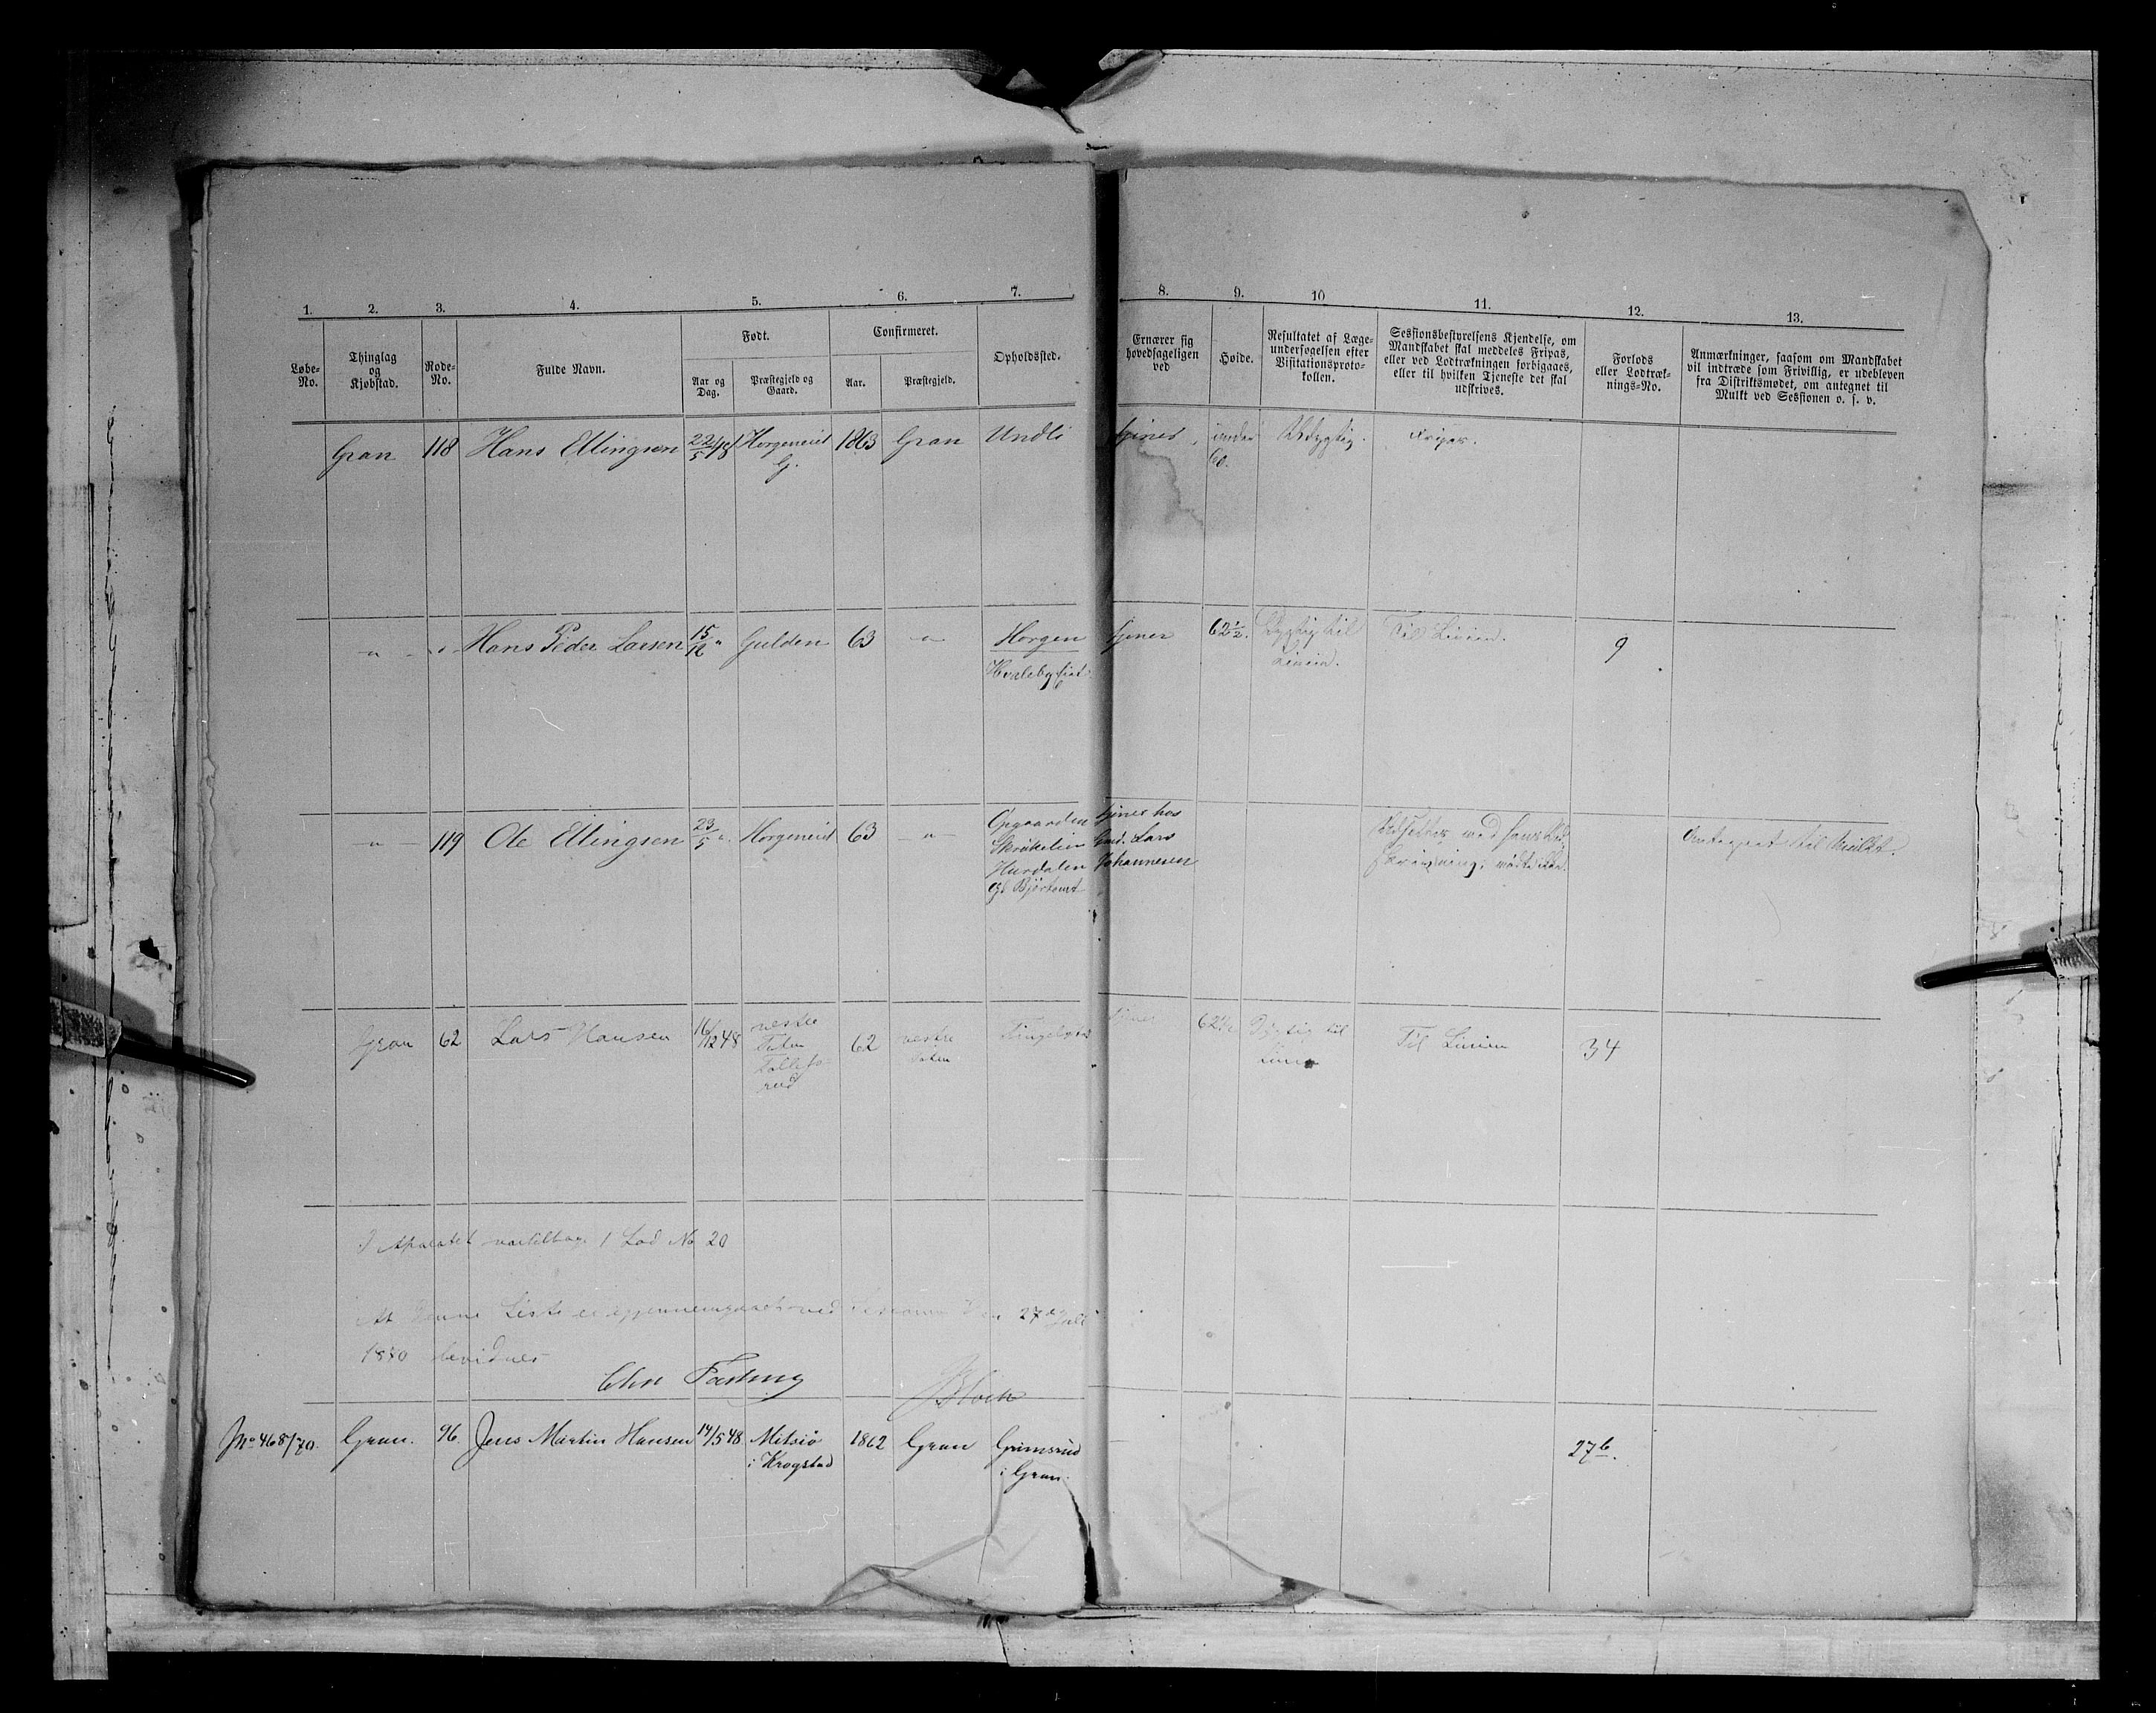 1. 2. 3. 4. 5. 6. 7. 8. 9. 10 11. 12. 13.
Løbe-No.
Thinglag og Kjøbstad.
Rode-No.
Fulde Navn.
Født.
Aar og Dag.
Præstegjeld og Gaard.
Confirmeret.
Aar.
Præstegjeld.
Opholdssted.
Ernærer sig hovedsageligen ved
Høide.
Resultatet af Læge-
undersøgelsen efter
Visitationsproto-
kollen.
Sessionsbestyrelsens Kjendelse, om
Mandskabet skal meddeles Fripas,
eller ved Lodtrækningen forbigaaes,
eller til hvilken Tjeneste det skal
udskrives.
Forlods
eller Lodtræk-
nings-No.
Anmærkninger, saasom om Mandskabet
vil indtræde som Frivillig, er udebleven
fra Distriktsmødet, om antegnet til
Mulkt ved Sessionen o. s. v.
Gran 118 Hans Ellingsen 22/5 48 Horgeneiet 1863 Gran Undli tjener under Udygtig. Fripas.
G. 60.
-"- Hans Peder Larsen 15/12 " Gulden 63 -"- Horgen tjener 62½. Dygtig til Til Linien. 9
Hvaleby Linien.
-"- 119 Ole Ellingsen 23/5 " Horgeneiet 63 -"- Opgaarden tjener hos Udsættes med hans Ud- Antegnet til Mulkt.
Skrukelien Gmd. Lars skrivning, mødte ikke.
Hurdalen Johannesen
Gran 62 Lars Hansen 16/12 48 vestre 62 vestre tjener 62½ Dygtig til Til Linien 34
Toten Toten Linien
rud
Lod No 20
At denne Liste er gjennemgaaet ved Sessionen den 27de Juli
1870 bevidnes
Chr Fasting
No 468/70. Gran. 96. Jens Martin Hansen 14/5 48. Mitsiø 1862 Gran Grimsrud 27b.
i Krogstad i Gran.